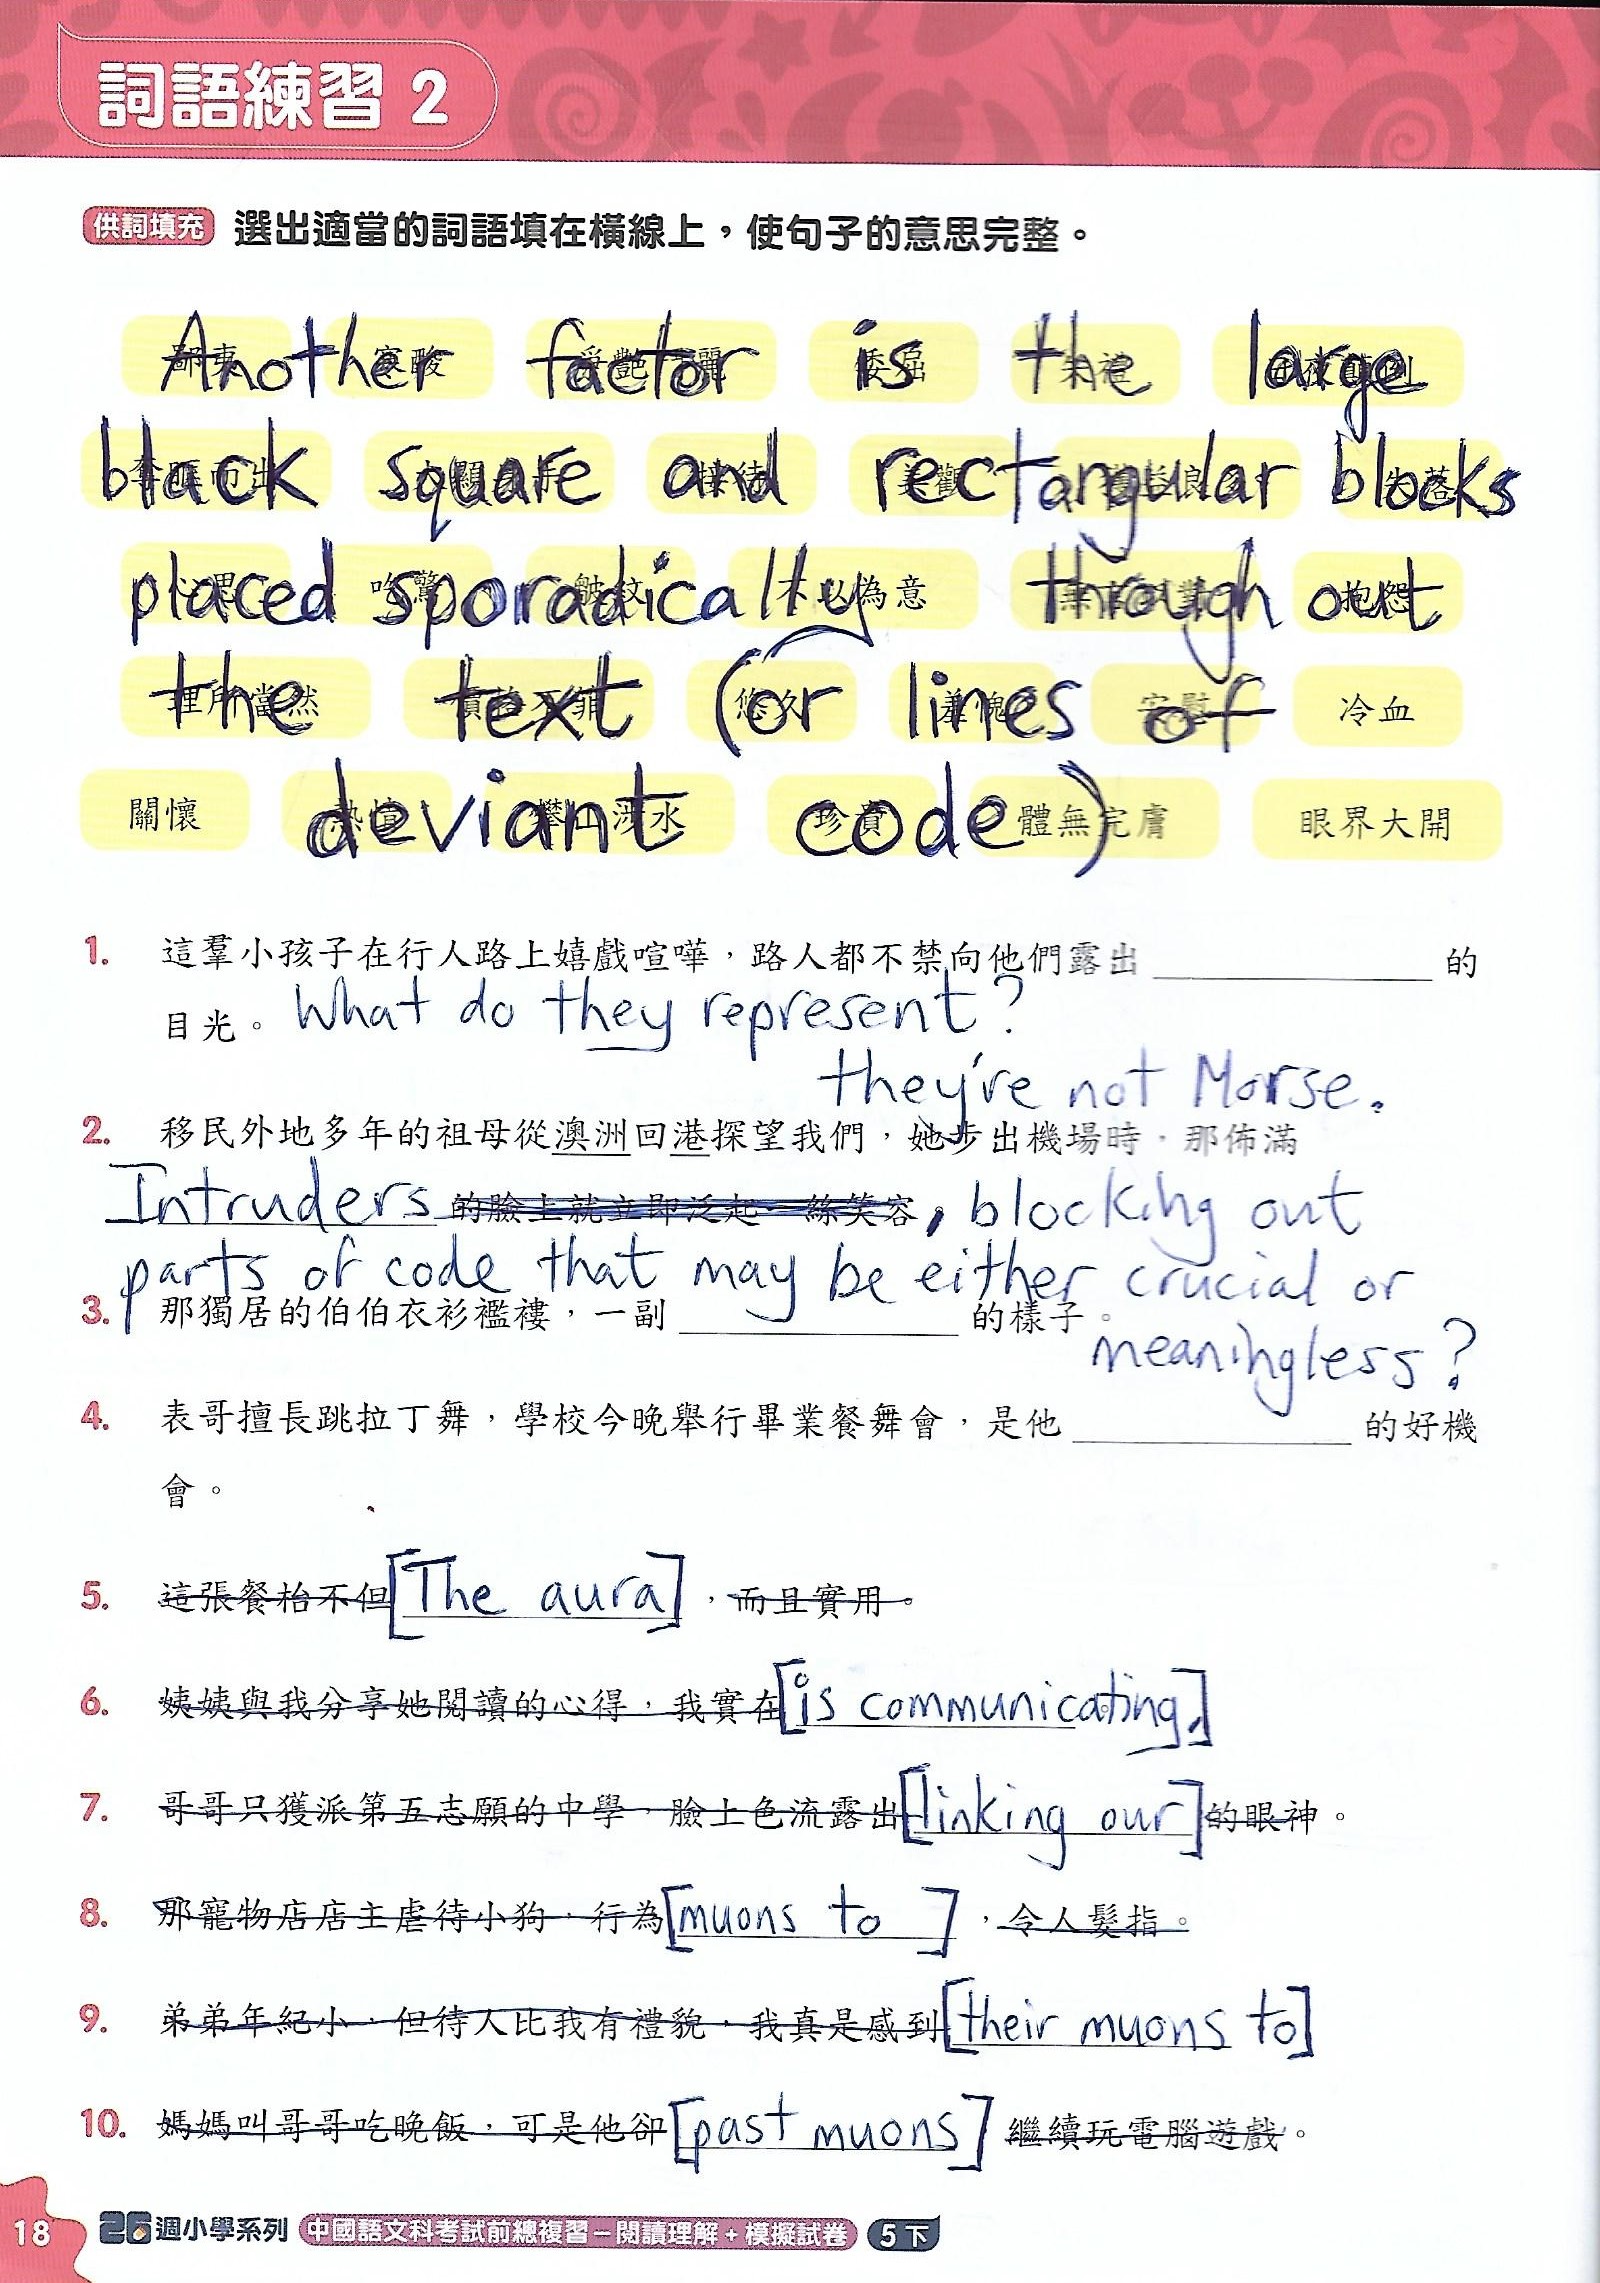 詞語練習 2
供詞填充 選出適當的詞語填在橫線上，使句子的意思完整。
Another factor is the large
black square and rectangular blocks
placed sporadically through out
不以為意
the text (or lines of
理所當然 悠久 羞愧 安慰 冷血
deviant code)
關懷 攀山涉水 珍貴 體無完膚 眼界大開
1. 這羣小孩子在行人路上嬉戲喧嘩，路人都不禁向他們露出 的
目光。 What do they represent?
they're not Morse.
2. 移民外地多年的祖母從澳洲回港探望我們，她步出機場時，那佈滿
Intruders 的臉上就立即泛起一絲笑容, blocking out
parts of code that may be either crucial or
3. 那獨居的伯伯衣衫襤褸，一副 的樣子。
meaningless?
4. 表哥擅長跳拉丁舞，學校今晚舉行畢業餐舞會，是他 的好機
會。
5. 這張餐枱不但[The aura]，而且實用。
6. 姨姨與我分享她閱讀的心得，我實在[is communicating,]
7. 哥哥只獲派第五志願的中學，臉上色流露出[linking our]的眼神。
8. 那寵物店店主虐待小狗，行為[muons to ]，令人髮指。
9. 弟弟年紀小，但待人比我有禮貌，我真是感到[their muons to]
10. 媽媽叫哥哥吃晚飯，可是他卻[past muons] 繼續玩電腦遊戲。
18 26週小學系列 中國語文科考試前總複習－閱讀理解＋模擬試卷 5下